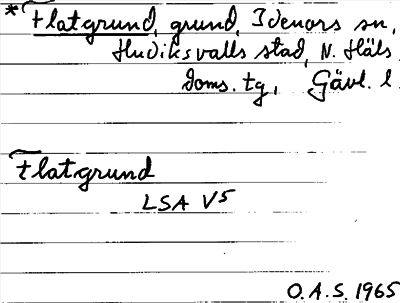 * Flatgrund, grund, Idenors sn,
Hudiksvalls stad, N. Häls.
doms. tg, Gävl. l.
Flatgrund
LSA V5
O.A.S. 1965